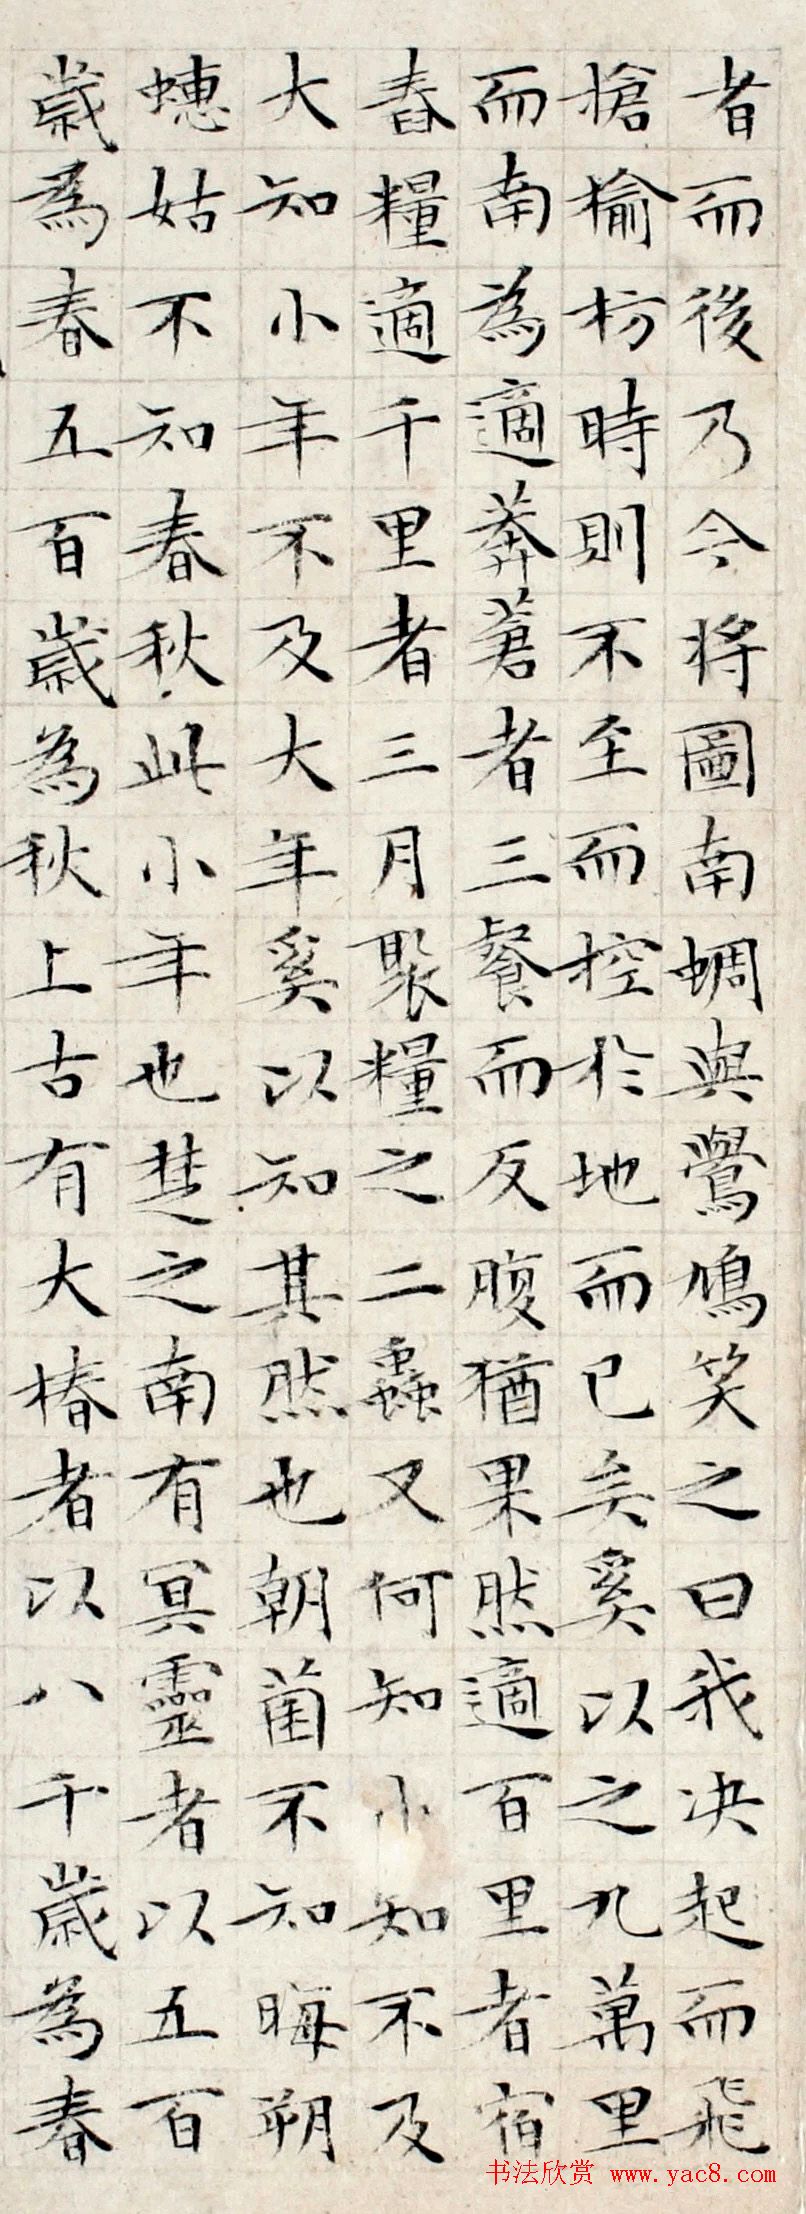 者而後乃今將圖南蜩與鷽鳩笑之曰我决起而飛
搶榆枋時則不至而控於地而已矣奚以之九萬里
而南為適莽蒼者三餐而反腹猶果然適百里者宿
舂糧適千里者三月聚糧之二蟲又何知小知不及
大知小年不及大年奚以知其然也朝菌不知晦朔
蟪姑不知春秋此小年也楚之南有冥靈者以五百
歲為春五百歲為秋上古有大椿者以八千歲為春
书法欣赏 www.yac8.com